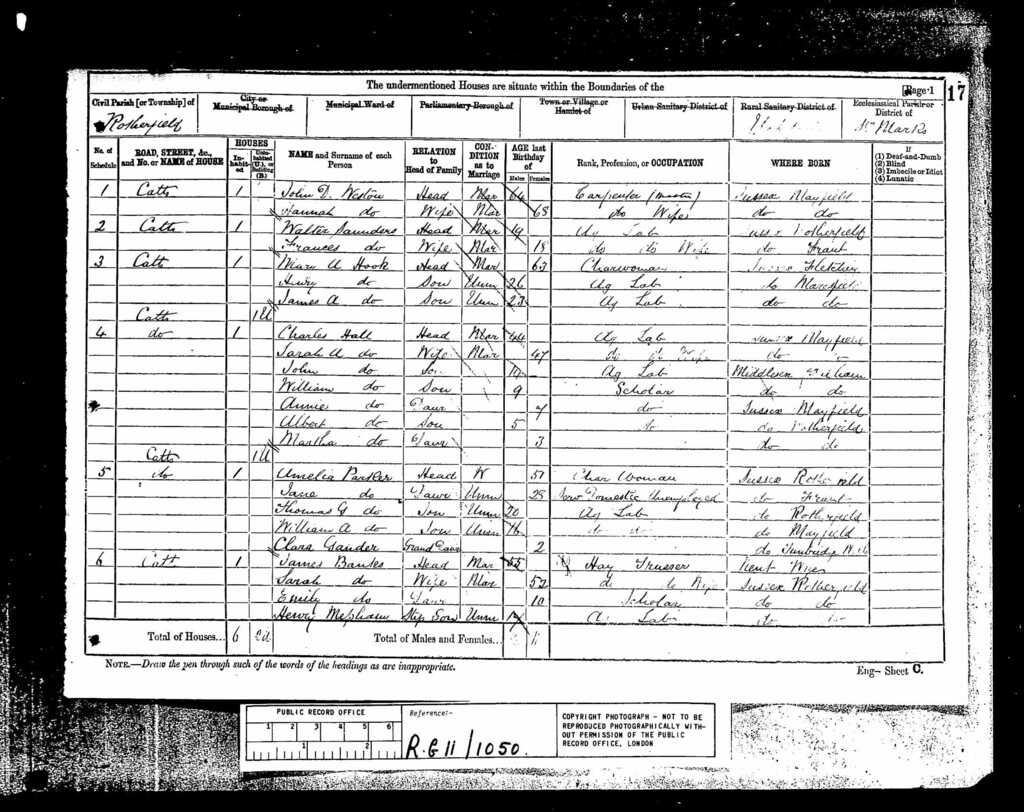 The undermentioned Houses are situate within the Boundaries of the
[Page 1
17
Civil Parish [or Township] of
City or Municipal Borough of
Municipal Ward of
Parliamentary Borough of
Town or Village or Hamlet of
Urban Sanitary District of
Rural Sanitary District of
Ecclesiastical Parish or District of
Rotherfield
St Marks
No. of Schedule
ROAD, STREET, &c., and No. or NAME of HOUSE
HOUSES
Inhabited
Uninhabited (U.), or Building (B.)
NAME and Surname of each Person
RELATION to Head of Family
CONDITION as to Marriage
AGE last Birthday of
Males
Females
Rank, Profession, or OCCUPATION
WHERE BORN
If
(1) Deaf-and-Dumb
(2) Blind
(3) Imbecile or Idiot
(4) Lunatic
1 Catts 1 John D. Weston Head Mar 64 Carpenter (master) Sussex Mayfield
Hannah do Wife Mar 68 do Wife do do
2 Catts 1 Walter Saunders Head Mar 19 Ag Lab Sussex Rotherfield
Frances do Wife Mar 18 do do Wife do Frant
3 Catts 1 Mary A Hook Head Mar 63 Charwoman Sussex Fletching
Henry do Son Unm 26 Ag Lab do Maresfield
James A. do Son Unm 23 Ag Lab do do
Catts 1U
4 do 1 Charles Hall Head Mar 44 Ag Lab Sussex Mayfield
Sarah A do Wife Mar 47 do do Wife do
John do Son 14 Ag Lab Middlesex
William do Son 9 Scholar do do
Annie do Daur 7 do Sussex Mayfield
Albert do Son 5 do do Rotherfield
Martha do Daur 3 do do
Catts 1U
5 do 1 Amelia Parker Head W 51 Char Woman Sussex Rotherfield
Jane do Daur Unm 28 Serv Domestic Unemployed do Frant
Thomas G do Son Unm 20 Ag Lab do Rotherfield
William A do Son Unm 16 do do do Mayfield
Clara Gander Grand Daur 2 do Tunbridge Wells
6 Catts 1 James Banks Head Mar 55 Hay Trusser Kent
Sarah do Wife Mar 52 do do Wife Sussex Rotherfield
Emily do Daur 10 Scholar do do
Henry Mepham Step Son Unm Ag Lab do do
Total of Houses... 6 2U
Total of Males and Females... 11
NOTE.—Draw the pen through such of the words of the headings as are inappropriate.
Eng—Sheet C.
PUBLIC RECORD OFFICE
1 2 3 4 5 6
1 2
Reference:-
R.G 11/1050.
COPYRIGHT PHOTOGRAPH - NOT TO BE
REPRODUCED PHOTOGRAPHICALLY WITH-
OUT PERMISSION OF THE PUBLIC
RECORD OFFICE, LONDON